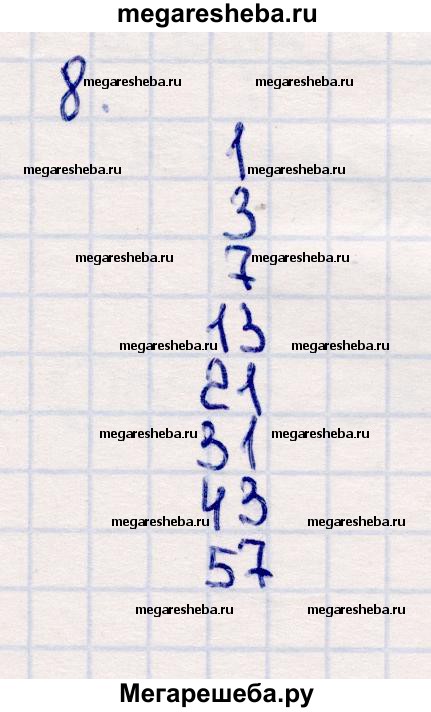 megaresheba.ru
8. megaresheba.ru megaresheba.ru
1
megaresheba.ru megaresheba.ru
3
megaresheba.ru 7 megaresheba.ru
13
megaresheba.ru megaresheba.ru
21
megaresheba.ru 31 megaresheba.ru
43
megaresheba.ru megaresheba.ru
57
megaresheba.ru megaresheba.ru
Мегарешеба.ру